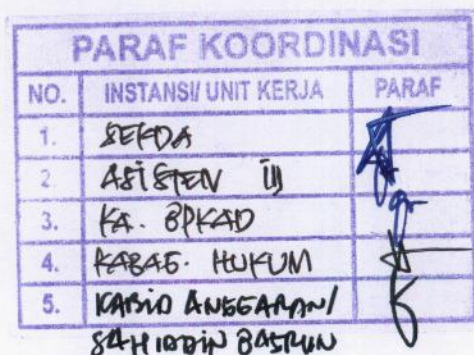 PARAF KOORDINASI
NO. INSTANSI/ UNIT KERJA PARAF
1. SEKDA
2. ASISTEN III
3. KA. BPKAD
4. KABAG. HUKUM
5. KABID ANGGARAN/
SAHIDDIN BASRUN